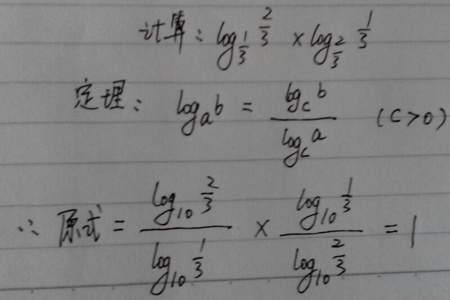 计算：log_{1/3} 2/3 × log_{2/3} 1/3
定理：log_a b = log_c b / log_c a （C>0）
∴ 原式 = log_{10} 2/3 / log_{10} 1/3 × log_{10} 1/3 / log_{10} 2/3 = 1